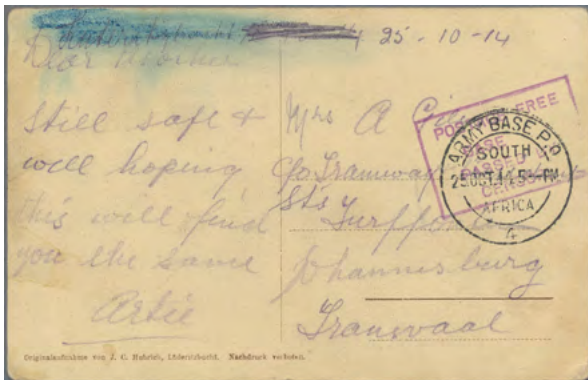 25-10-14
Dear Mother
Still safe &
well hoping
this will find
you the same
Artie
Mrs A
c/o Tramway
Sts
Johannisburg
Tranwaal
POST FREE
BASE
PASSED
ARMY BASE P.O.
SOUTH
25 OCT. 14. 5 3-PM
AFRICA
4
Originalaufnahme von J. C. Hubrich, Lüderitzbucht. Nachdruck verboten.